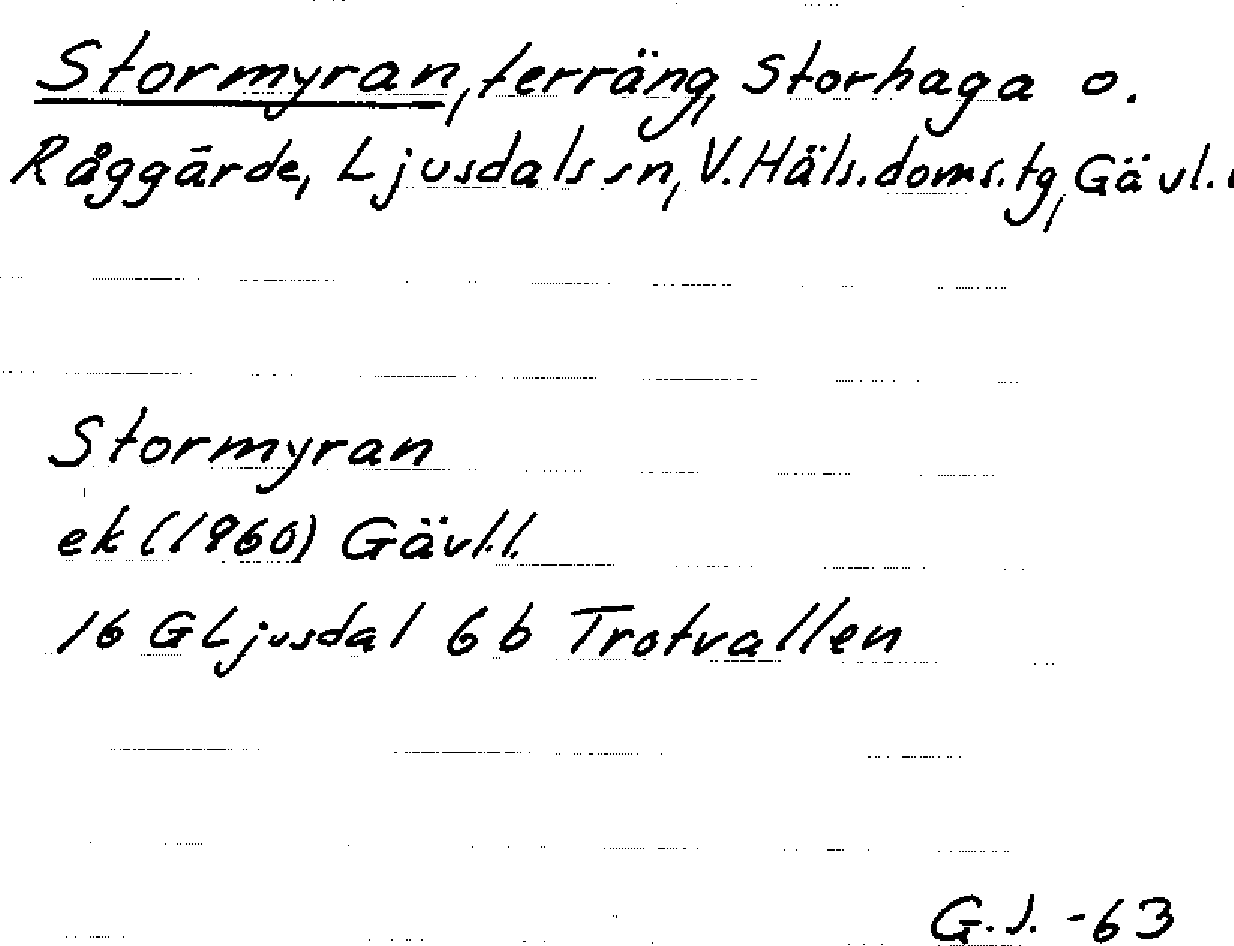 Stormyran, terräng, Storhaga o.
Råggärde, Ljusdals sn, V. Häls. doms. tg, Gävl. l
Stormyran
ek (1960) Gävl.l.
16 G Ljusdal 6 b Trotvallen
G.J. -63